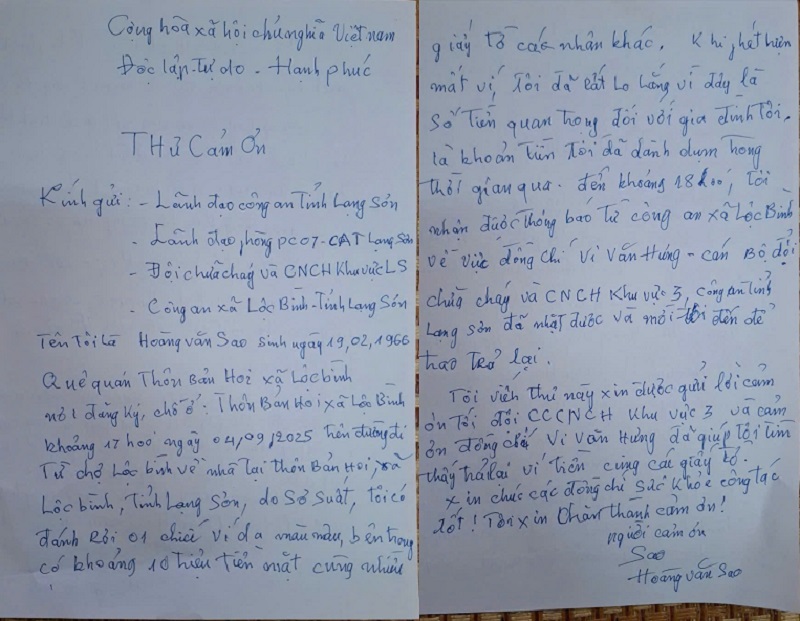 Cộng hòa xã hội chủ nghĩa Việt nam
Độc lập-tự do - Hạnh phúc
THƯ CẢM ƠN
Kính gửi: - Lãnh đạo công an Tỉnh Lạng Sơn
- Lãnh đạo phòng PC07-CAT Lạng Sơn
- Đội chữa cháy và CNCH Khu vực LS
- Công an xã Lộc Bình-Tỉnh Lạng Sơn
Tên Tôi là Hoàng văn Sao sinh ngày 19,02,1966
Quê quán Thôn Bản Hoi xã Lộc bình
nơi đăng ký, chỗ ở: Thôn Bản Hoi xã Lộc Bình
khoảng 17h00 ngày 04,09,2025 trên đường đi
Từ chợ Lộc bình về nhà tại thôn Bản Hoi, xã
Lộc bình, Tỉnh Lạng Sơn, do Sơ suất, tôi có
đánh Rơi 01 chiếc ví da màu nâu, bên trong
có khoảng 10 triệu tiền mặt cùng nhiều
giấy tờ các nhân khác. Khi phát hiện
mất ví, Tôi đã rất Lo lắng vì đây là
Số Tiền quan trọng đối với gia đình tôi,
là khoản tiền tôi đã dành dụm trong
thời gian qua. đến khoảng 18h00, tôi
nhận được thông báo từ công an xã Lộc Bình
về việc đồng chí Vi Văn Hưng - cán Bộ đội
chữa cháy và CNCH Khu vực 3, công an tỉnh
Lạng sơn đã nhặt được và mời tôi đến để
trao trả lại.
Tôi viết thư này xin được gửi lời cảm
ơn tới đội CCCNCH Khu vực 3 và cảm
ơn đồng chí Vi Văn Hưng đã giúp tôi tìm
thấy trả lại ví tiền cùng các giấy tờ.
xin chúc các đồng chí Sức Khỏe công tác
tốt! Tôi xin chân thành cảm ơn!
người cảm ơn
Sao
Hoàng văn Sao